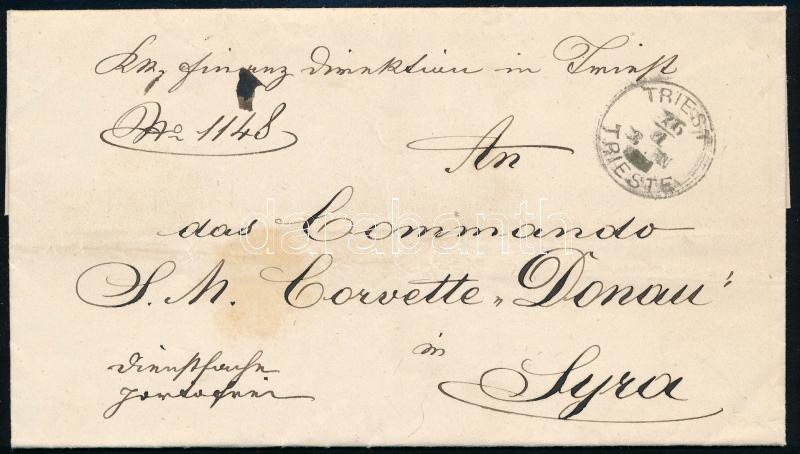 KK, Finanz Direktion in Triest
No 1148
TRIEST
26
TRIESTE
An
das Commando
S. M. Corvette „Donau“
in
Syra
Dienstsache
portofrei
darabanth